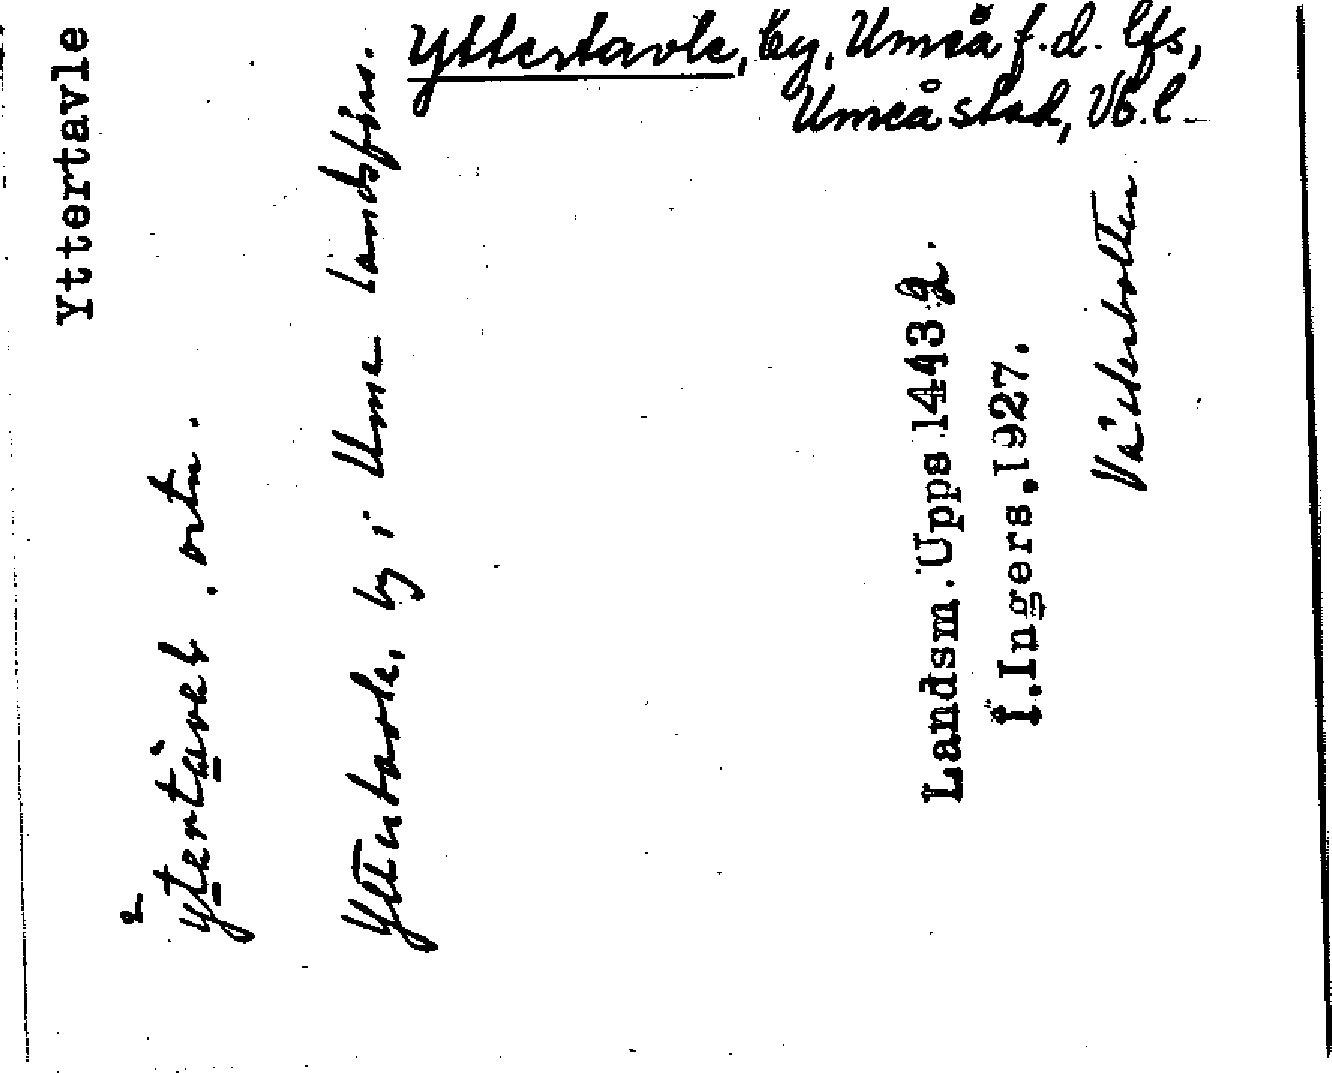 Yttertavle, by, Umeå f.d. lfs,
Umeå stad, Vb.l.
Yttertavle
ytertavel, ortn.
Yttertavle, by i Ume landsförs.
Landsm. Upps 1443 2.
I. Ingers. 1927.
Västerbotten